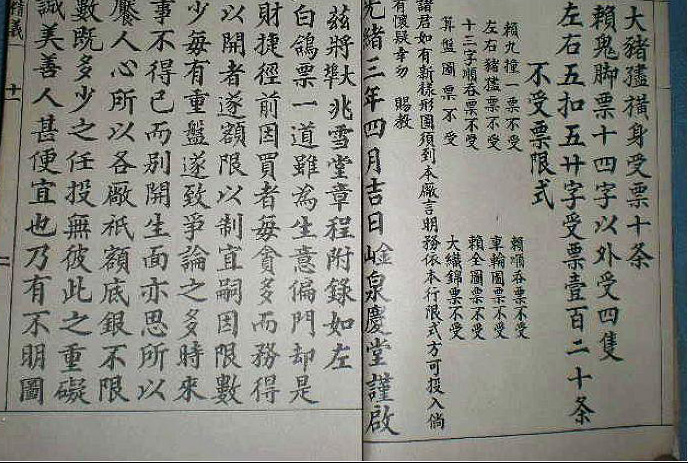 大豬橫身受票十条
賴鬼脚票十四字以外受四隻
左右五扣五廾字受票壹百二十条
不受票限式
賴九撞一票不受 賴順吞票不受
左右豬票不受 車輪圖票不受
十三字順吞票不受 賴全圖票不受
算盤圖票不受 大織錦票不受
諸君如有新樣形圖須到本廠言明務依本行限式方可投入倘
有懷疑幸勿 賜教
光緒三年四月吉日 崯泉慶堂謹啟
茲將兆雪堂章程附錄如左
白鴿票一道雖為生意偏門却是
財捷徑前因買者每貪多而務得
以開者遂額限以制宜嗣因限數
少每有重盤遂致爭論之多時來
事不得已而別開生面亦思所以
饜人心所以各廠祇額底銀不限
數既多少之任投無彼此之重礙
誠美善人甚便宜也乃有不明圖
精義 十一 二